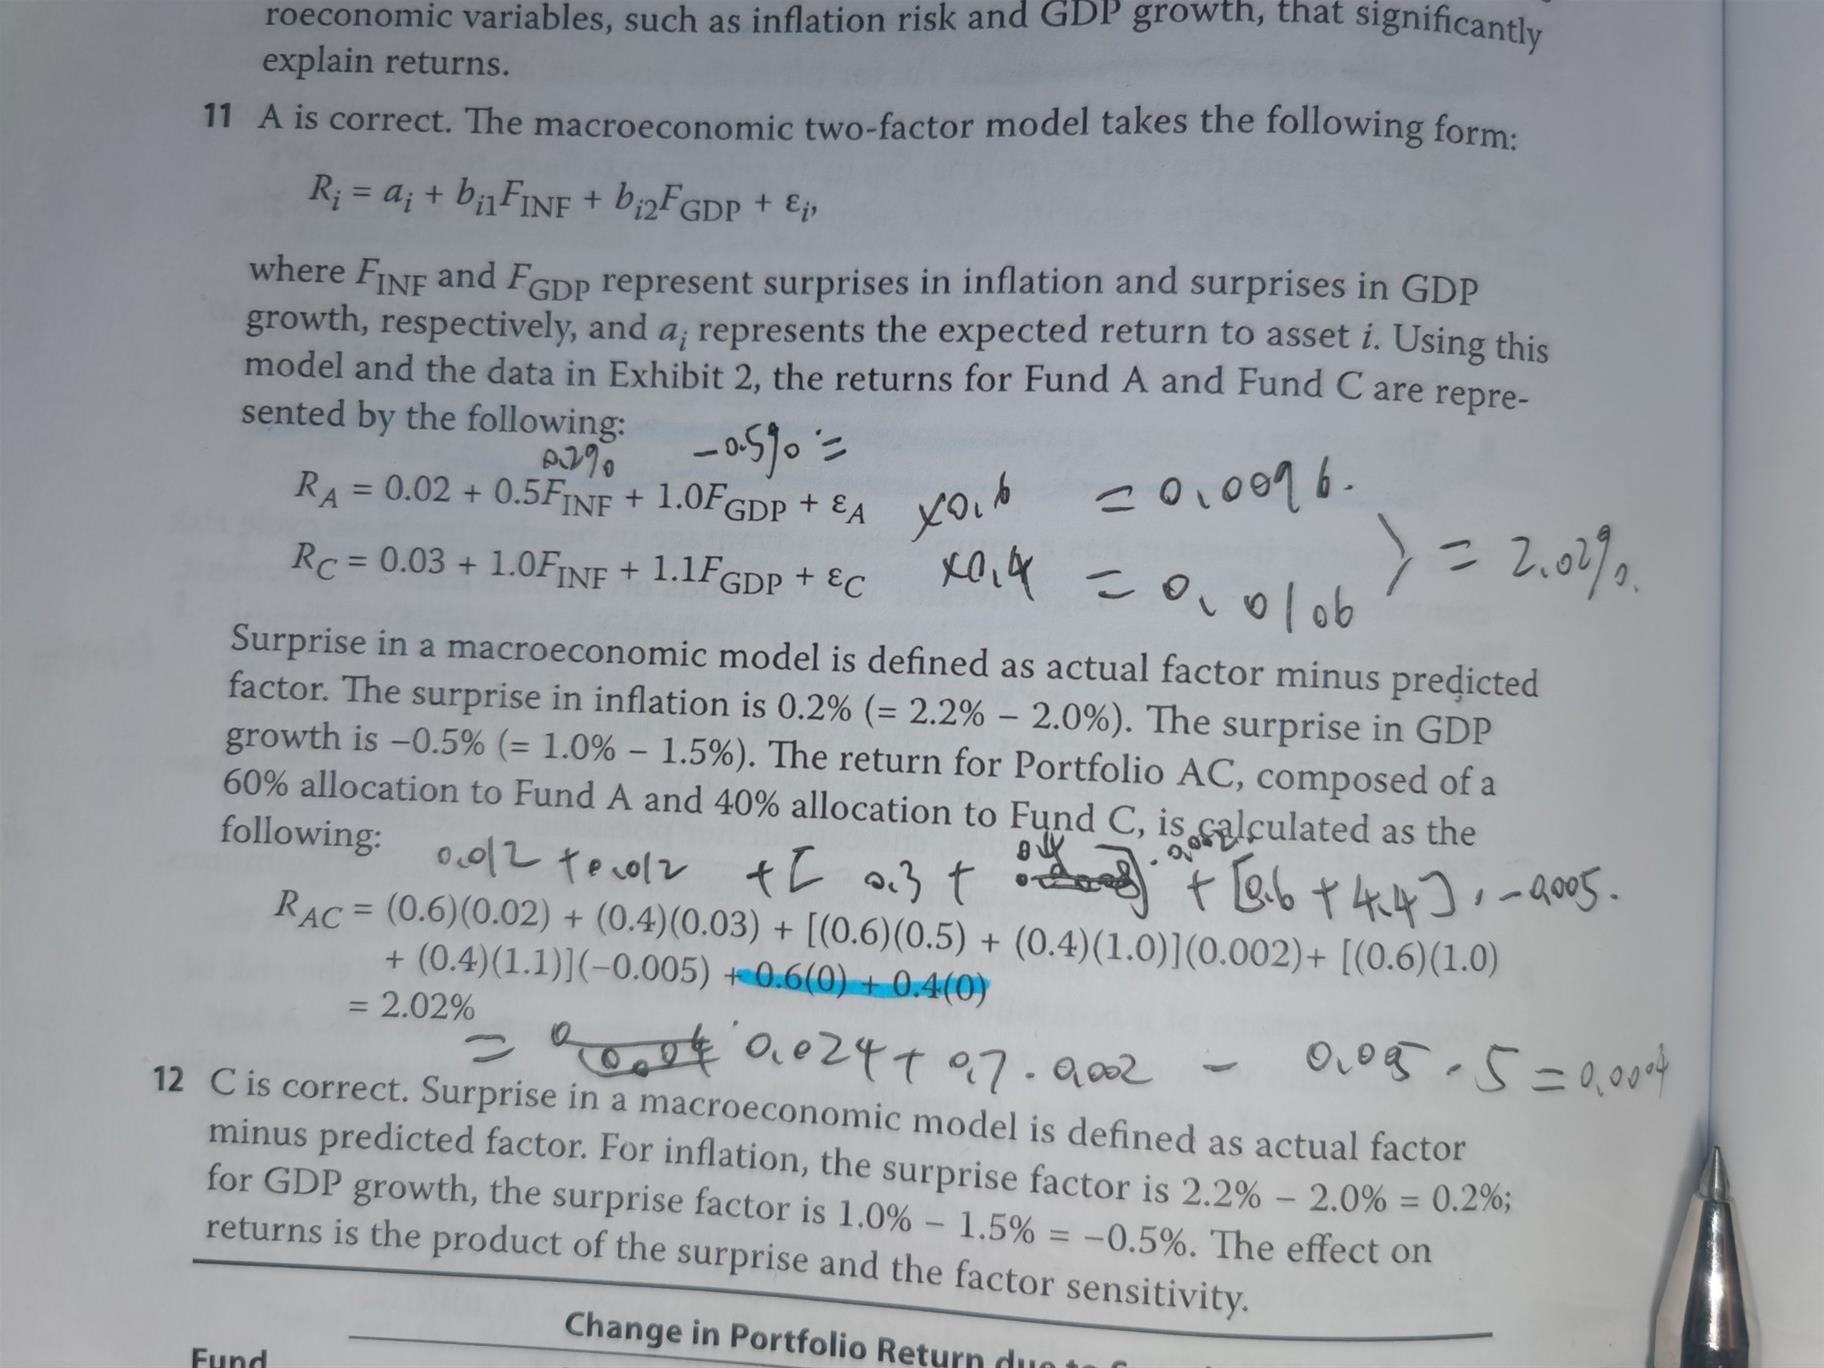 roeconomic variables, such as inflation risk and GDP growth, that significantly
explain returns.
11 A is correct. The macroeconomic two-factor model takes the following form:
Rᵢ = aᵢ + bᵢ₁F_INF + bᵢ₂F_GDP + εᵢ,
where F_INF and F_GDP represent surprises in inflation and surprises in GDP
growth, respectively, and aᵢ represents the expected return to asset i. Using this
model and the data in Exhibit 2, the returns for Fund A and Fund C are repre-
sented by the following:
0.2% -0.5% =
R_A = 0.02 + 0.5F_INF + 1.0F_GDP + ε_A ×0.6 = 0.0096.
R_C = 0.03 + 1.0F_INF + 1.1F_GDP + ε_C ×0.4 = 0.0106 } = 2.02%.
Surprise in a macroeconomic model is defined as actual factor minus predicted
factor. The surprise in inflation is 0.2% (= 2.2% − 2.0%). The surprise in GDP
growth is −0.5% (= 1.0% − 1.5%). The return for Portfolio AC, composed of a
60% allocation to Fund A and 40% allocation to Fund C, is calculated as the
following:
0.012 + 0.012 + [ 0.3 + 0.4 ] · 0.002 + [0.6 + 4.4] · -0.005.
R_AC = (0.6)(0.02) + (0.4)(0.03) + [(0.6)(0.5) + (0.4)(1.0)](0.002)+ [(0.6)(1.0)
+ (0.4)(1.1)](−0.005) + 0.6(0) + 0.4(0)
= 2.02%
= 0.024 + 0.7 · 0.002 - 0.005 · 5 = 0.0004
12 C is correct. Surprise in a macroeconomic model is defined as actual factor
minus predicted factor. For inflation, the surprise factor is 2.2% − 2.0% = 0.2%;
for GDP growth, the surprise factor is 1.0% − 1.5% = −0.5%. The effect on
returns is the product of the surprise and the factor sensitivity.
Change in Portfolio Return due to
Fund